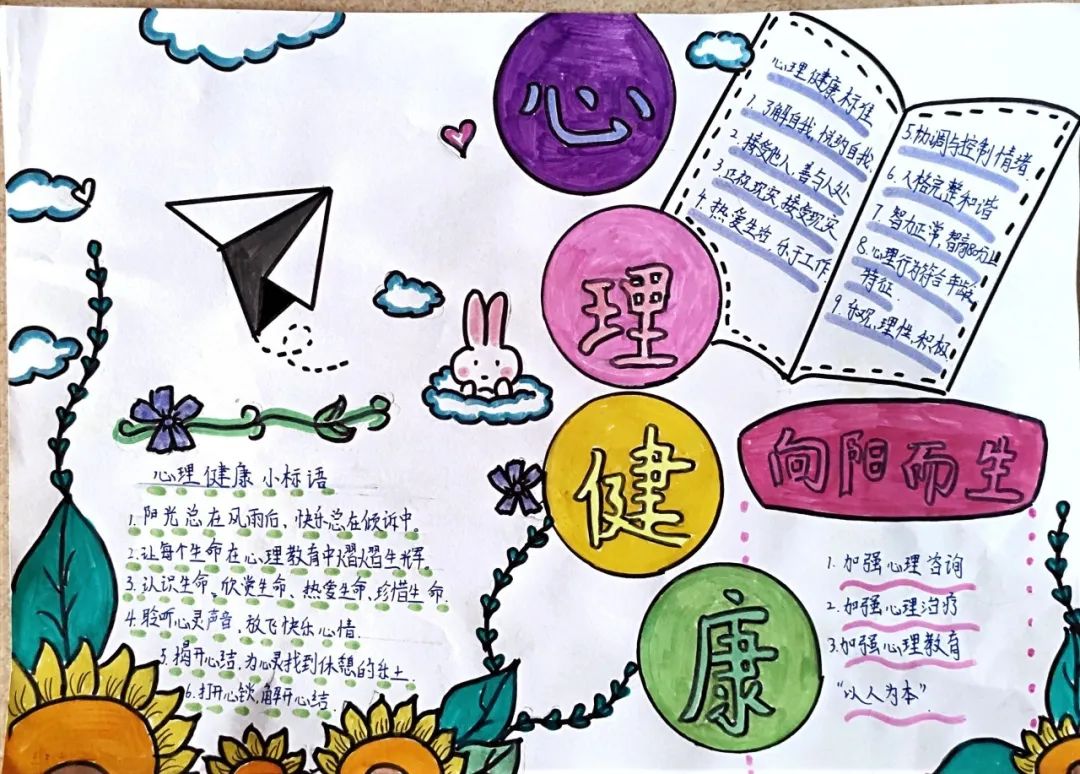 心
理
健
康
心理健康标准
1.了解自我,悦纳自我.
2.接受他人,善与人处
3.正视现实,接受现实
4.热爱生活,乐于工作
5.协调与控制情绪.
6.人格完整和谐
7.智力正常,智商80分以上
8.心理行为符合年龄
特征.
9.乐观,理性,积极.
向阳而生
1.加强心理咨询
2.加强心理治疗
3.加强心理教育
"以人为本"
心理健康小标语
1.阳光总在风雨后,快乐总在倾诉中。
2.让每个生命在心理教育中熠熠生辉。
3.认识生命、欣赏生命、热爱生命,珍惜生命.
4.聆听心灵声音,放飞快乐心情.
5.揭开心结,为心灵找到休憩的乐土.
6.打开心锁,解开心结.